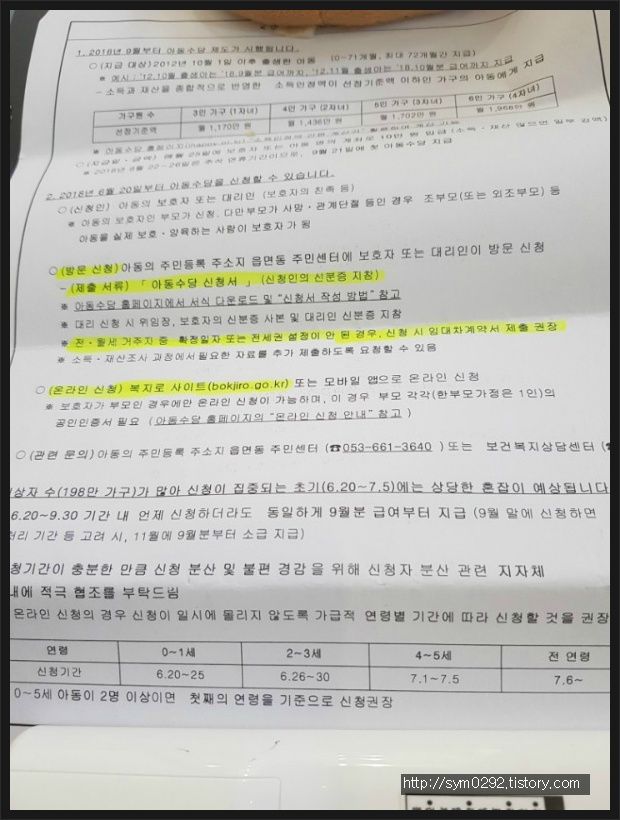 1. 2018년 9월부터 아동수당 제도가 시행됩니다.
○ (지급 대상) 2012년 10월 1일 이후 출생한 아동 (0~71개월, 최대 72개월간 지급)
※ 예시 : '12.10월 출생아는 '18.9월분 급여까지, '12.11월 출생아는 '18.10월분 급여까지 지급
- 소득과 재산을 종합적으로 반영한 소득인정액이 선정기준액 이하인 가구의 아동에게 지급
가구원 수 3인 가구 (1자녀) 4인 가구 (2자녀) 5인 가구 (3자녀) 6인 가구 (4자녀)
선정기준액 월 1,170만 원 월 1,436만 원 월 1,702만 원 월 1,968만 원
※ 아동수당 홈페이지
○ (지급일·금액) 매월 25일에 보호자 또는 아동 명의 계좌로 10만 원 입금 (소득·재산 많으면 일부 감액)
※ 2018년 9월 22~26일은 추석 연휴기간이므로, 9월 21일에 첫 아동수당 지급
2. 2018년 6월 20일부터 아동수당을 신청할 수 있습니다.
○ (신청인) 아동의 보호자 또는 대리인 (보호자의 친족 등)
※ 아동의 보호자인 부모가 신청. 다만부모가 사망·관계단절 등인 경우 조부모(또는 외조부모) 등
아동을 실제 보호·양육하는 사람이 보호자가 됨
○ (방문 신청) 아동의 주민등록 주소지 읍면동 주민센터에 보호자 또는 대리인이 방문 신청
- (제출 서류) 「 아동수당 신청서 」 (신청인의 신분증 지참)
※ 아동수당 홈페이지에서 서식 다운로드 및 "신청서 작성 방법" 참고
※ 대리 신청 시 위임장, 보호자의 신분증 사본 및 대리인 신분증 지참
※ 전·월세 거주자 중 확정일자 또는 전세권 설정이 안 된 경우, 신청 시 임대차계약서 제출 권장
※ 소득·재산조사 과정에서 필요한 자료를 추가 제출하도록 요청할 수 있음
○ (온라인 신청) 복지로 사이트(bokjiro.go.kr) 또는 모바일 앱으로 온라인 신청
※ 보호자가 부모인 경우에만 온라인 신청이 가능하며, 이 경우 부모 각각(한부모가정은 1인)의
공인인증서 필요 (아동수당 홈페이지의 "온라인 신청 안내" 참고 )
○ (관련 문의) 아동의 주민등록 주소지 읍면동 주민센터 (☎053-661-3640 ) 또는 보건복지상담센터 (☎
상자 수(198만 가구)가 많아 신청이 집중되는 초기(6.20~7.5)에는 상당한 혼잡이 예상됩니다
6.20~9.30 기간 내 언제 신청하더라도 동일하게 9월분 급여부터 지급 (9월 말에 신청하면
처리 기간 등 고려 시, 11월에 9월분부터 소급 지급)
청기간이 충분한 만큼 신청 분산 및 불편 경감을 위해 신청자 분산 관련 지자체
내에 적극 협조를 부탁드림
온라인 신청의 경우 신청이 일시에 몰리지 않도록 가급적 연령별 기간에 따라 신청할 것을 권장
연령 0~1세 2~3세 4~5세 전 연령
신청기간 6.20~25 6.26~30 7.1~7.5 7.6~
0~5세 아동이 2명 이상이면 첫째의 연령을 기준으로 신청권장
http://sym0292.tistory.com